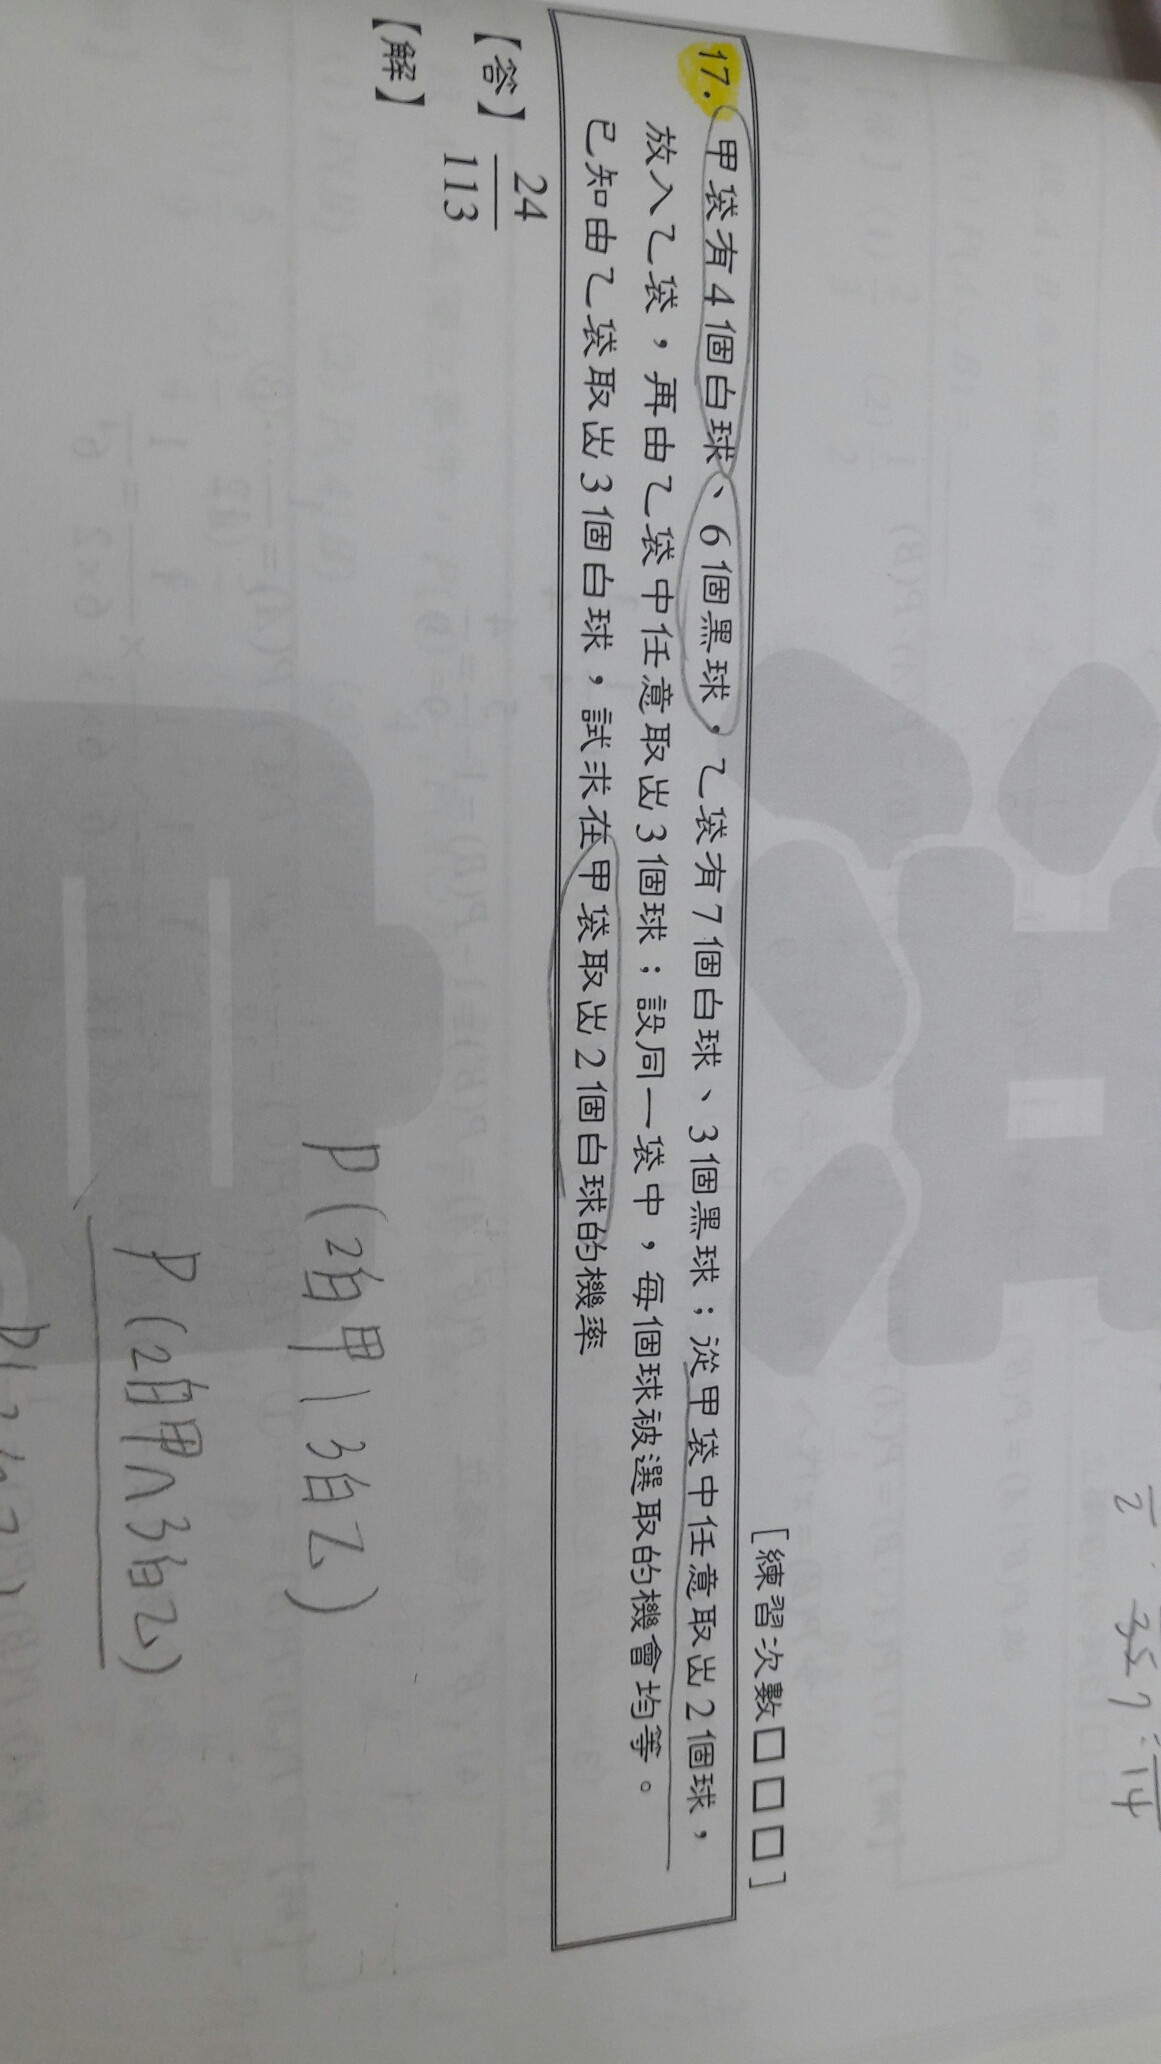 [練習次數□□□]
17. 甲袋有4個白球、6個黑球，乙袋有7個白球、3個黑球；從甲袋中任意取出2個球，
放入乙袋，再由乙袋中任意取出3個球；設同一袋中，每個球被選取的機會均等。
已知由乙袋取出3個白球，試求在甲袋取出2個白球的機率
【答】24/113
【解】
P(2白甲|3白乙)
P(2白甲∩3白乙)